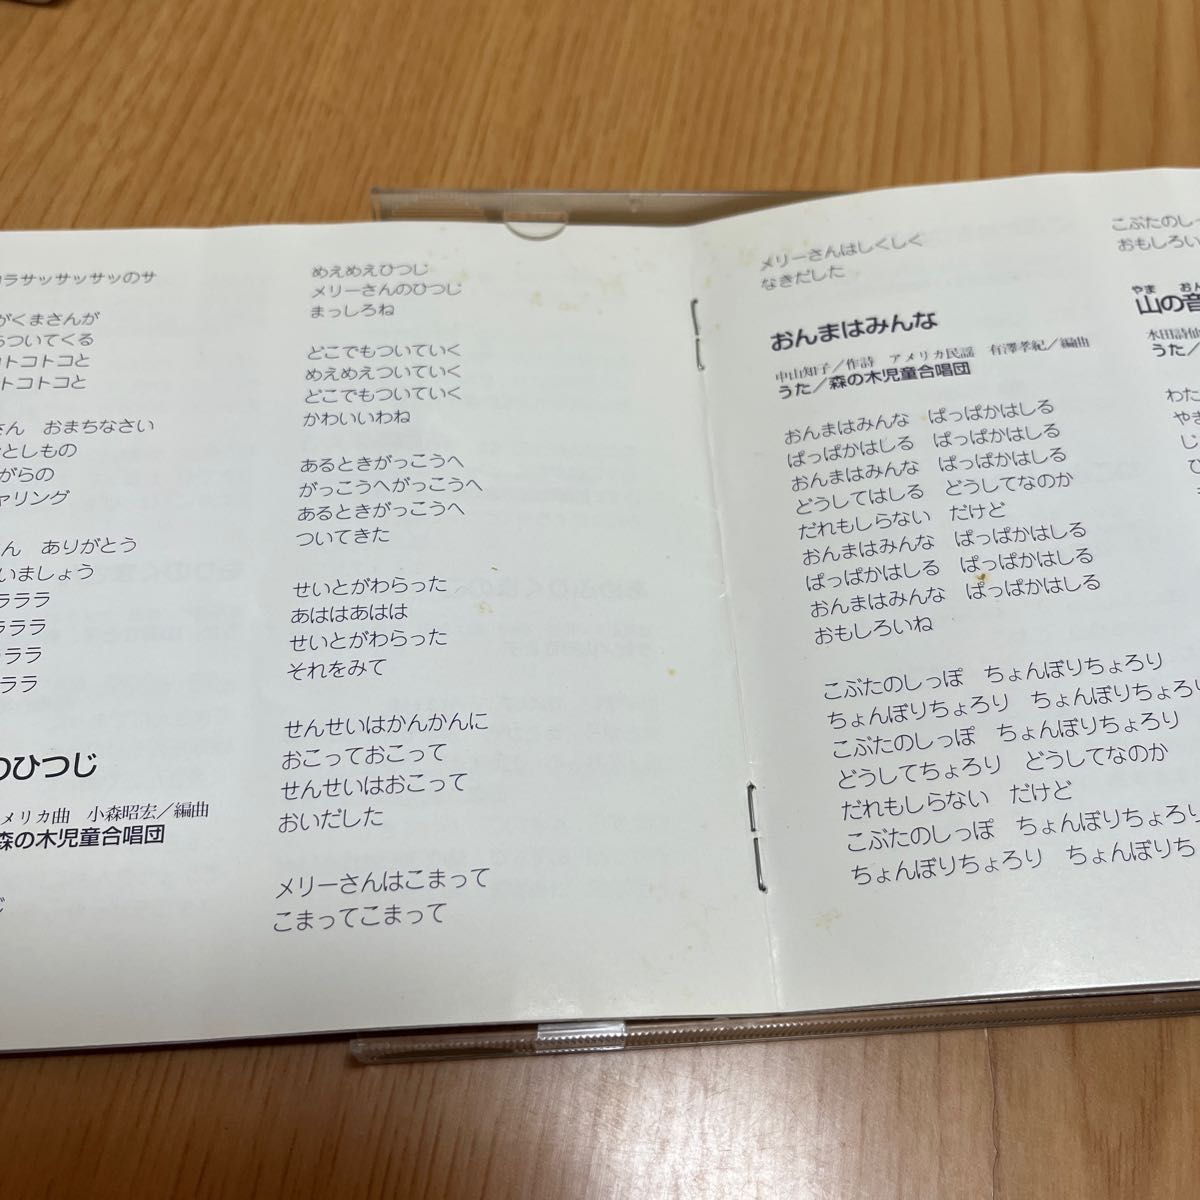 ラサッサッサッのサ
がくまさんが
ついてくる
コトコトコと
トコトコと
さん　おまちなさい
としもの
がらの
ヤリング
ん　ありがとう
いましょう
ラララ
ラララ
ラララ
ララ
のひつじ
メリカ曲　小森昭宏／編曲
森の木児童合唱団
めえめえひつじ
メリーさんのひつじ
まっしろね
どこでもついていく
めえめえついていく
どこでもついていく
かわいいわね
あるときがっこうへ
がっこうへがっこうへ
あるときがっこうへ
ついてきた
せいとがわらった
あははあはは
せいとがわらった
それをみて
せんせいはかんかんに
おこっておこって
せんせいはおこって
おいだした
メリーさんはこまって
こまってこまって
メリーさんはしくしく
なきだした
おんまはみんな
中山知子／作詩　アメリカ民謡　有澤孝紀／編曲
うた／森の木児童合唱団
おんまはみんな　ぱっぱかはしる
ぱっぱかはしる　ぱっぱかはしる
おんまはみんな　ぱっぱかはしる
どうしてはしる　どうしてなのか
だれもしらない　だけど
おんまはみんな　ぱっぱかはしる
ぱっぱかはしる　ぱっぱかはしる
おんまはみんな　ぱっぱかはしる
おもしろいね
こぶたのしっぽ　ちょんぼりちょろり
ちょんぼりちょろり　ちょんぼりちょろり
こぶたのしっぽ　ちょんぼりちょろり
どうしてちょろり　どうしてなのか
だれもしらない　だけど
こぶたのしっぽ　ちょんぼりちょろり
ちょんぼりちょろり　ちょんぼりち
こぶたのしっ
おもしろい
やま　おん
山の音
水田詩仙
うた／森
わた
やき
し